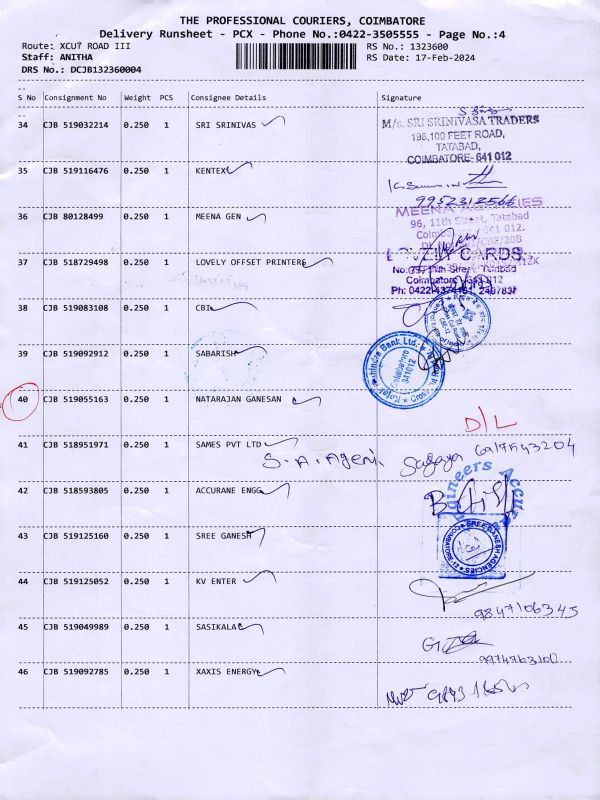 THE PROFESSIONAL COURIERS, COIMBATORE
Delivery Runsheet - PCX - Phone No.:0422-3505555 - Page No.:4
Route: XCUT ROAD III
RS No.: 1323600
Staff: ANITHA
RS Date: 17-Feb-2024
DRS No.: DCJB132360004
S No Consignment No Weight PCS Consignee Details Signature
34 CJB 519032214 0.250 1 SRI SRINIVAS
M/s. SRI SRINIVASA TRADERS
198,100 FEET ROAD,
TATABAD,
COIMBATORE- 641 012
35 CJB 519116476 0.250 1 KENTEX
9952312566
36 CJB 80128499 0.250 1 MEENA GEN
MEENA AGENCIES
96, 11th Street, Tatabad
641 012.
37 CJB 518729498 0.250 1 LOVELY OFFSET PRINTERS
CARDS
Tatabad
Coimbatore
Ph: 0422
38 CJB 519083108 0.250 1 CBI
39 CJB 519092912 0.250 1 SABARISH
Mahindra Bank Ltd.
Coimbatore
641012
40 CJB 519055163 0.250 1 NATARAJAN GANESAN
D/L
41 CJB 518951971 0.250 1 SAMES PVT LTD
S.A.Agenc
42 CJB 518593805 0.250 1 ACCURANE ENGG
Engineers
43 CJB 519125160 0.250 1 SREE GANESH
SREE GANESH AGENCIES
COIMBATORE-12
44 CJB 519125052 0.250 1 KV ENTER
9847106345
45 CJB 519049989 0.250 1 SASIKALA
46 CJB 519092785 0.250 1 XAXIS ENERGY